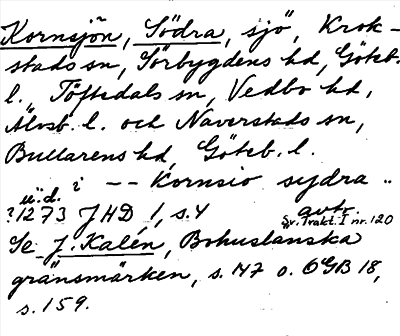 Kornsjön, Södra, sjö, Krok-
stads sn, Sörbygdens hd, Göteb.
l. Töftedals sn, Vedbo hd,
Älvsb. l. och Naverstads sn,
Bullarens hd, Göteb. l.
u.d. i -- Kornsio sydra ..
?1273 JHD 1, s.4 avtr. Sv. Trakt. I nr. 120
Se J. Kalén, Bohuslänska
gränsmärken, s. 147 o. OGB 18,
s. 159.